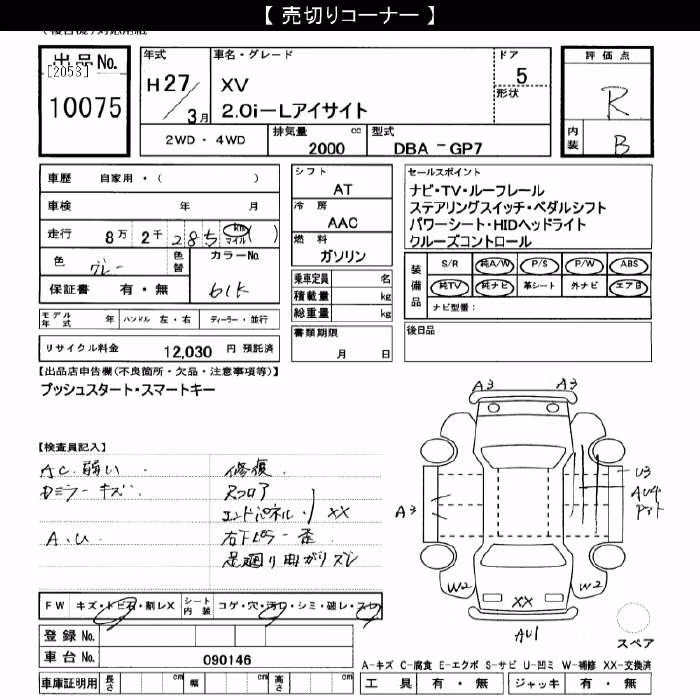 【 売切りコーナー 】
出品No.
[2053]
10075
年式
H27/3月
車名・グレード
XV
2.0i-Lアイサイト
ドア
5
形状
2WD ・ 4WD
排気量
2000
cc
型式
DBA - GP7
評価点
R
内装
B
車歴 自家用・( )
車検 年 月
走行 8万 2千 285 km マイル ( )
色 グレー 色替
カラーNo.
61K
保証書 有・無
モデル年式 年 ハンドル 左・右 ディーラー・並行
リサイクル料金 12,030 円 預託済
シフト
AT
冷房
AAC
燃料
ガソリン
乗車定員 名
積載量 kg
総重量 kg
書類期限
月 日
セールスポイント
ナビ・TV・ルーフレール
ステアリングスイッチ・ペダルシフト
パワーシート・HIDヘッドライト
クルーズコントロール
装備品
S/R 純A/W P/S P/W ABS
純TV 純ナビ 革シート 外ナビ エアB
ナビ型番:
後日品
【出品店申告欄(不良箇所・欠品・注意事項等)】
プッシュスタート・スマートキー
【検査員記入】
A.C.弱い
Dミラーキズ
A.U
修復
Rフロア
エンドパネル XX
右下ピラー歪
足廻り曲がりズレ
A3 A3
A3
U3
AU4
W2 W2
XX
AU1
スペア
FW キズ・トビ石・割レX シート内装 コゲ・穴・汚レ・シミ・破レ・スレ
登録No.
車台No. 090146
車庫証明用 長さ cm 幅 cm 高さ cm
A-キズ C-腐食 E-エクボ S-サビ U-凹ミ W-補修 XX-交換済
工具 有・無 ジャッキ 有・無